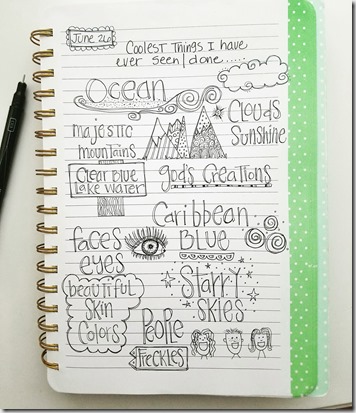 June 26
Coolest Things I have
ever seen/done.....
Ocean
Clouds
Sunshine
majestic
mountains
Clear blue
Lake water
god's Creations
Caribbean
BLUE
faces
eyes
beautiful
Skin
Colors
Starry
skies
People
Freckles